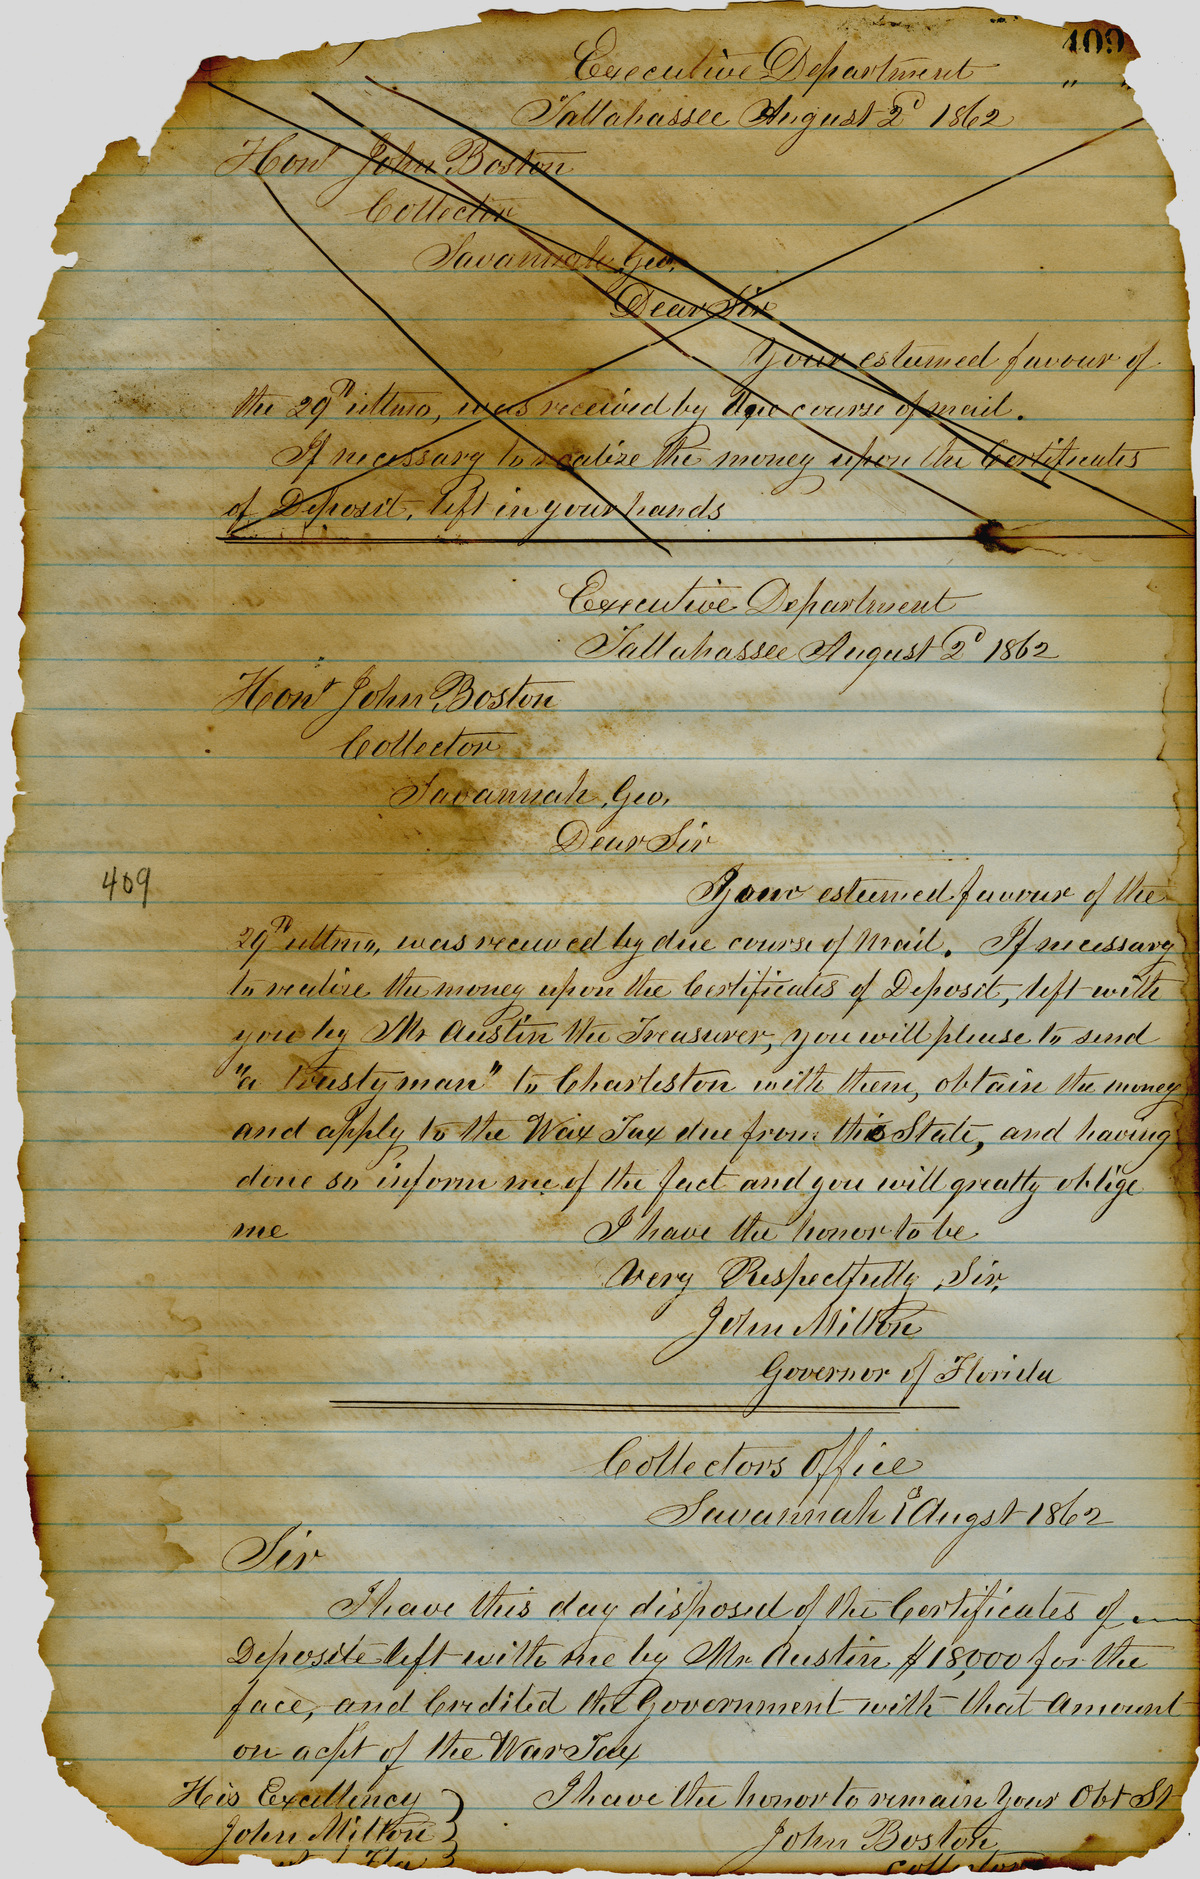 409
Executive Department
Tallahassee August 2d 1862
Honl John Boston
Collector
Savannah, Geo.
Dear Sir
Your esteemed favour of
the 29th ultmo, was received by due course of mail.
If necessary to realize the money upon the Certificates
of Deposit, left in your hands
Executive Department
Tallahassee August 2d 1862
Honl John Boston
Collector
Savannah, Geo,
Dear Sir
409
Your esteemed favour of the
29th ultmo, was received by due course of Mail. If necessary
to realize the money upon the Certificates of Deposit, left with
you by Mr Austin the Treasurer, you will please to send
"a trusty man" to Charleston with them, obtain the money
and apply to the War Tax due from this State, and having
done so inform me of the fact and you will greatly oblige
me I have the honor to be
Very Respectfully, Sir,
John Milton
Governor of Florida
Collectors Office
Savannah 1st Augst 1862
Sir
I have this day disposed of the Certificates of
Deposite left with me by Mr Austin $18,000 for the
face, and Credited the Government with that Amount
on acpt of the War Tax
His Excellency I have the honor to remain Your Obt St
John Milton John Boston
Fla Collector